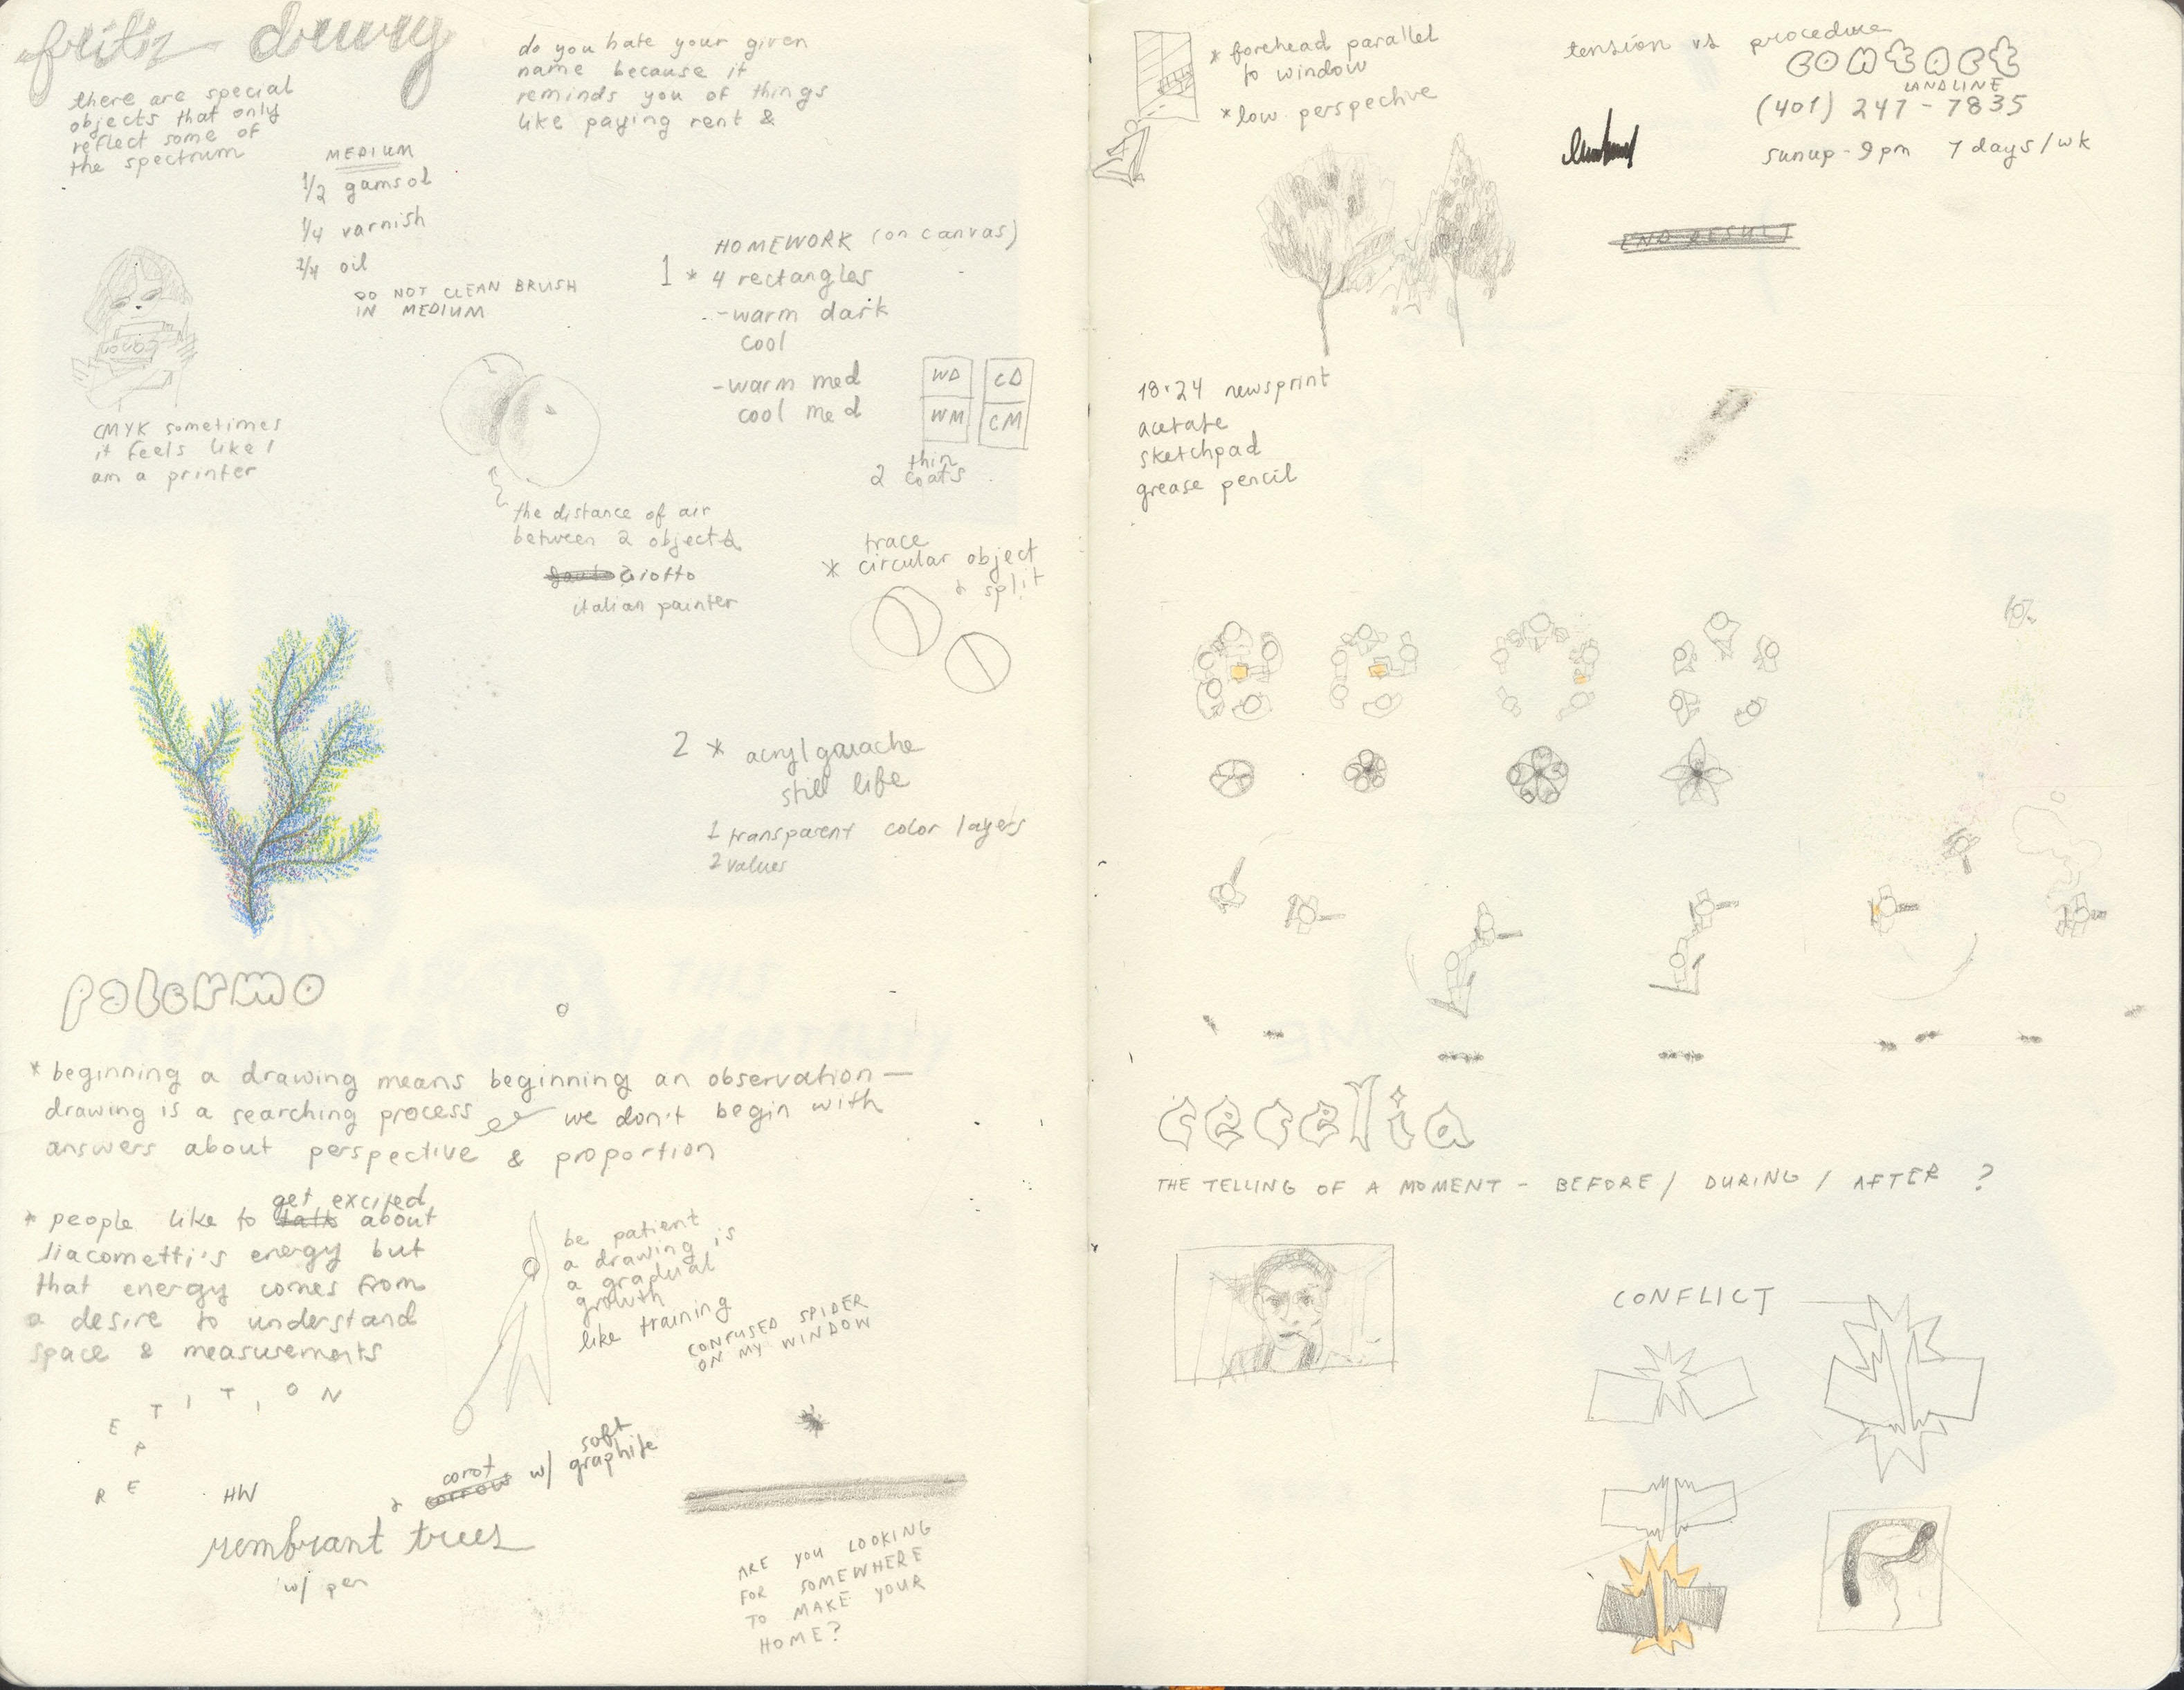 fritz drury
there are special
objects that only
reflect some of
the spectrum
do you hate your given
name because it
reminds you of things
like paying rent &
MEDIUM
1/2 gamsol
1/4 varnish
1/4 oil
DO NOT CLEAN BRUSH
IN MEDIUM
CMYK sometimes
it feels like I
am a printer
HOMEWORK (on canvas)
1 * 4 rectangles
- warm dark
cool
- warm med
cool med
WD CD
WM CM
thin
2 coats
the distance of air
between 2 objects
Giotto
italian painter
trace
* circular object
& split
2 * acrylgouache
still life
1 transparent color layers
2 values
palermo
* beginning a drawing means beginning an observation —
drawing is a searching process we don't begin with
answers about perspective & proportion
get excited
* people like to talk about
liacometti's energy but
that energy comes from
a desire to understand
space & measurements
be patient
a drawing is
a gradual
growth
like training
CONFUSED SPIDER
ON MY WINDOW
REPETITION
HW
soft
& corot w/ graphite
rembrant trees
w/ pen
ARE YOU LOOKING
FOR SOMEWHERE
TO MAKE YOUR
HOME?
* forehead parallel
to window
* low perspective
tension vs procedure
contact
LANDLINE
(401) 247-7835
sunup - 9pm 7 days/wk
END RESULT
18×24 newsprint
acetate
sketchpad
grease pencil
cecelia
THE TELLING OF A MOMENT - BEFORE / DURING / AFTER ?
CONFLICT